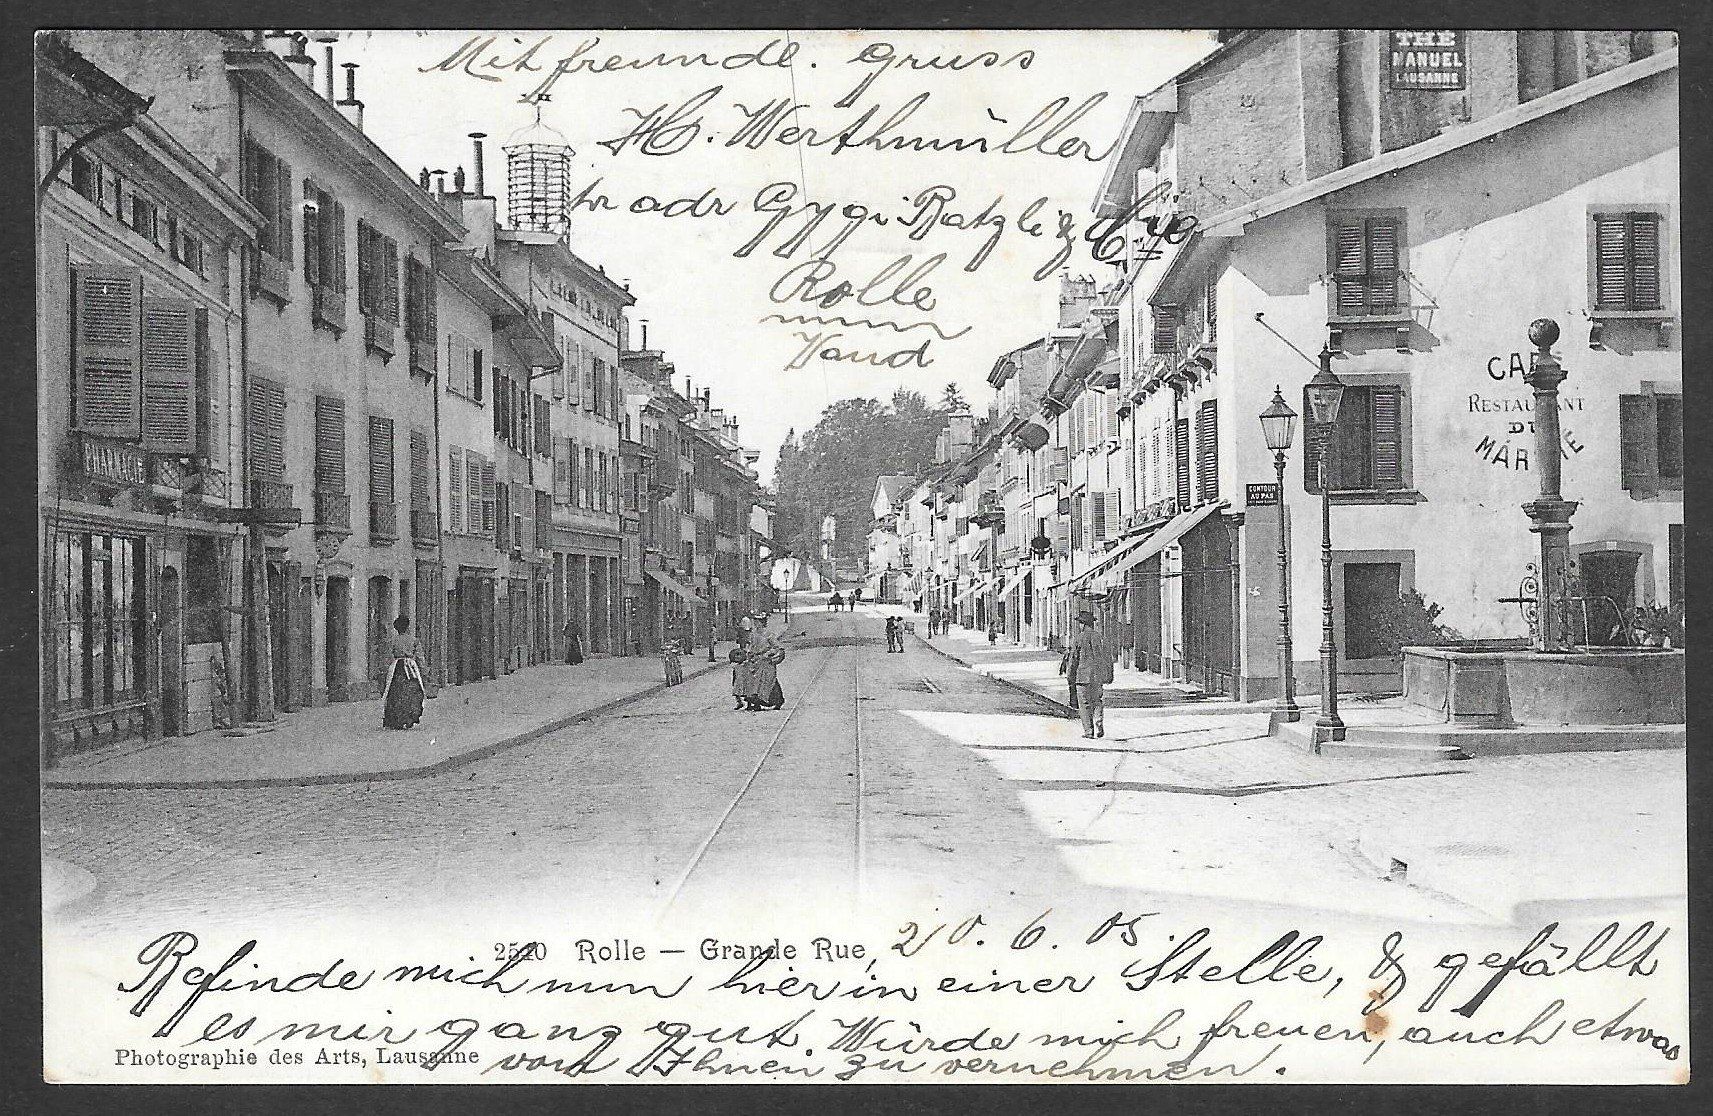 Mit freundl. gruss
H. Werthmüller
pr adr Gygi Ratzli & Cie
Rolle
Vaud
THE
MANUEL
LAUSANNE
PHARMACIE
CAFÉ
RESTAURANT
DU
MARCHE
CONTOUR
AU PAS
2510 Rolle — Grande Rue, 20. 6. 05
Befinde mich nun hier in einer Stelle, & gefällt
es mir ganz gut. Würde mich freuen, auch etwas
Photographie des Arts, Lausanne
von Ihnen zu vernehmen.